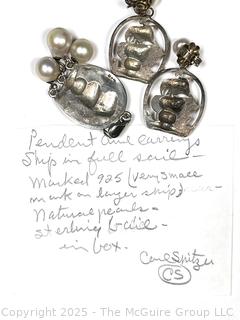 Pendent and earrings
Ship in full sail -
Marked 925 (very small
mark on larger ship)
Natural pearls -
sterling &
in box.
Carl Spitzer
CS
Copyright 2025 - The McGuire Group LLC